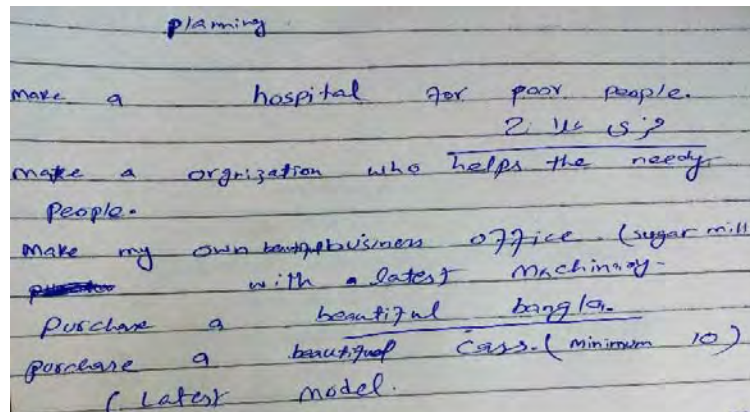 planning
make a hospital for poor people.
make a orgnization who helps the needy
people.
make my own beautiful business office (sugar mill
with a latest machinary-
Purchase a beautiful bangla.
purchase a beautiful cars. (minimum 10)
(Latest model.